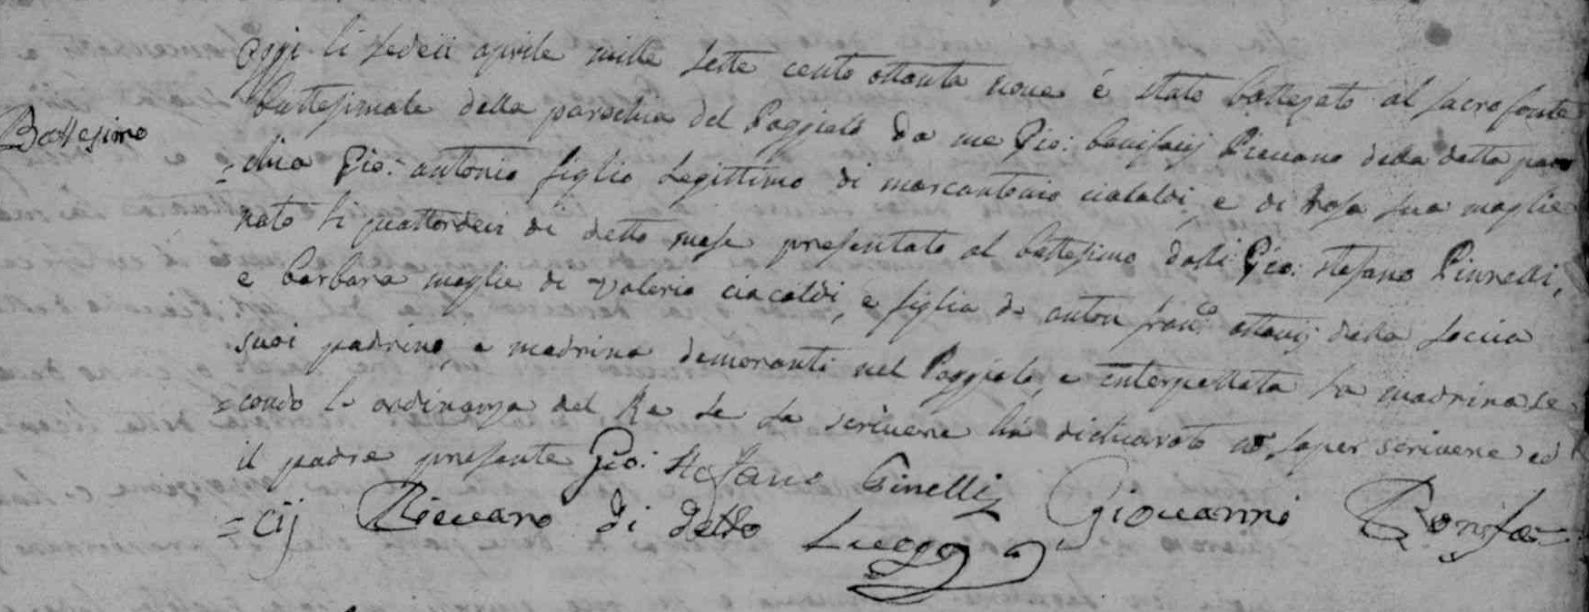 Oggi li sedeci aprile mille sette cento ottanta nove é stato battezato al sacro fonte
Battesimo
battesimale della parochia del Poggiolo da me Gio: bonifacij Pievano della detta paro
=chia Gio: antonio figlio legittimo di marcantonio ciacaldi, e di Rosa sua moglie
nato li quattordeci di detto mese presentato al battesimo dalli Gio: stefano Pinnelli,
e barbara moglie di valerio ciacaldi, e figlia di anton fran.co ottavij della soccia
suoi padrino, e madrina demoranti nel Poggiolo, e interpellata la madrina se
=condo l ordinanza del Re se sa scrivere ha dichiarato no saper scrivere ed
il padre presente Gio: Stefano Pinelli Giovanni Bonifa=
=cij Pievano di detto Luogo